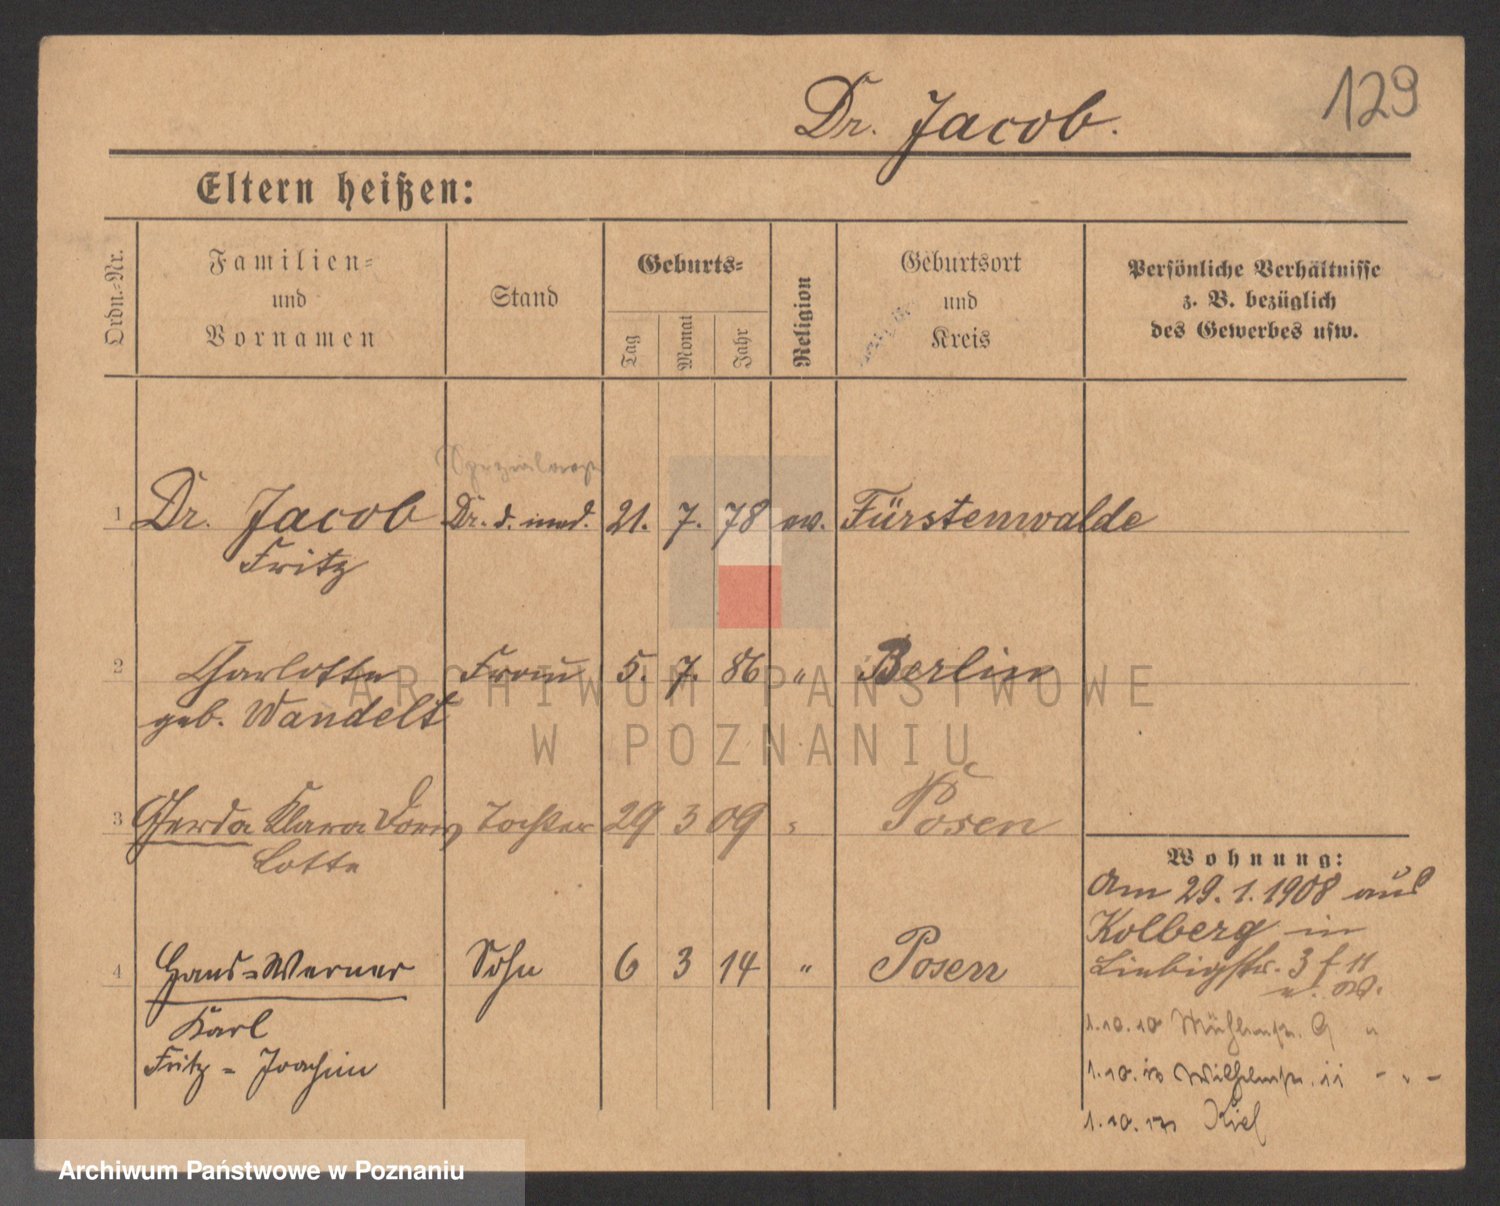 129
Dr. Jacob.
Eltern heißen:
Ordn.-Nr.
Familien-
und
Vornamen
Stand
Geburts-
Tag
Monat
Jahr
Religion
Geburtsort
und
Kreis
Persönliche Verhältnisse
z. B. bezüglich
des Gewerbes usw.
Spezialarzt
1 Dr. Jacob Dr. d. med. 21. 7. 78 ev. Fürstenwalde
Fritz
2 Charlotte Frau 5. 7. 86 " Berlin
geb. Wandelt
3 Gerda Klara Tochter 29 3 09 " Posen
Lotte
4 Hans-Werner Sohn 6 3 14 " Posen
Karl
Fritz - Joachim
Wohnung:
Am 29. 1. 1908 aus
Kolberg in
Liebigstr. 3
1.10.10 Mühlenstr. 9 "
1.10. Wilhelmstr. 11 - " -
1.10. Kiel
ARCHIWUM PAŃSTWOWE
W POZNANIU
Archiwum Państwowe w Poznaniu